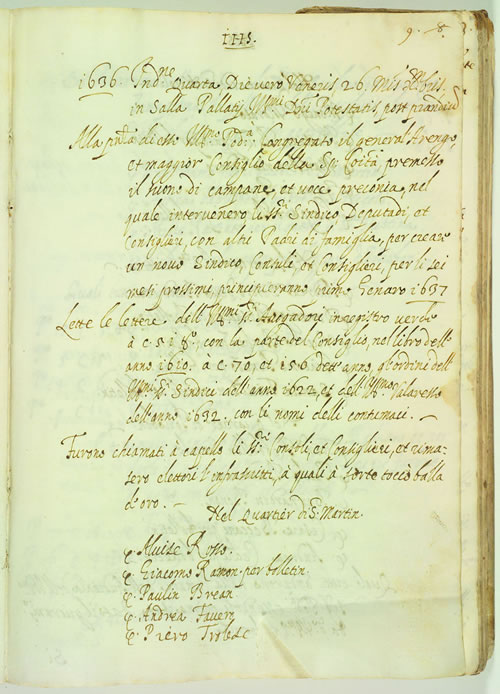 IHS.
9. 8.
1636. Ind.ne Quarta Die vero Veneris 26. Mis Xbris
in Salla Pallatij Ill.mi D.ni Potestatis post prandiu
Alla pn̄tia di esso Ill.mo Pod.a Congregato il general Arengo,
et maggior Consiglio della Sp. Coītà, premesso
il suono di campane, et voce preconia, nel
quale intervenero li SS.ri Sindico Deputadi, et
Consiglieri, con altri Padri di famiglia, per crear
un novo Sindico, Consuli, et Consiglieri, per li sei
mesi prossimi, principieranno primo Genaro 1637
Lette le lettere dell' Ill.mo S.r in registro verde
à c. 51 con la parte del Consiglio, nel libro dell'
anno 1610. à c. 70, et 156 dett' anno, gl'ordini dell'
Ill.mi SS.ri Sindici dell' anno 1622, et dell' Ill.mo Valaresso
dell'anno 1632, con li nomi delli contumaci. —
Furono chiamati à capello li SS.ri Consoli, et Consiglieri, et rima=
sero elettori l'infrascritti, à quali à sorte tocco balla
d'oro. —
Nel Quartier di S. Martin.
Aluise Rosso.
Giacomo Ramon per bolletin
Paulin Brean
Andrea Favero
Piero